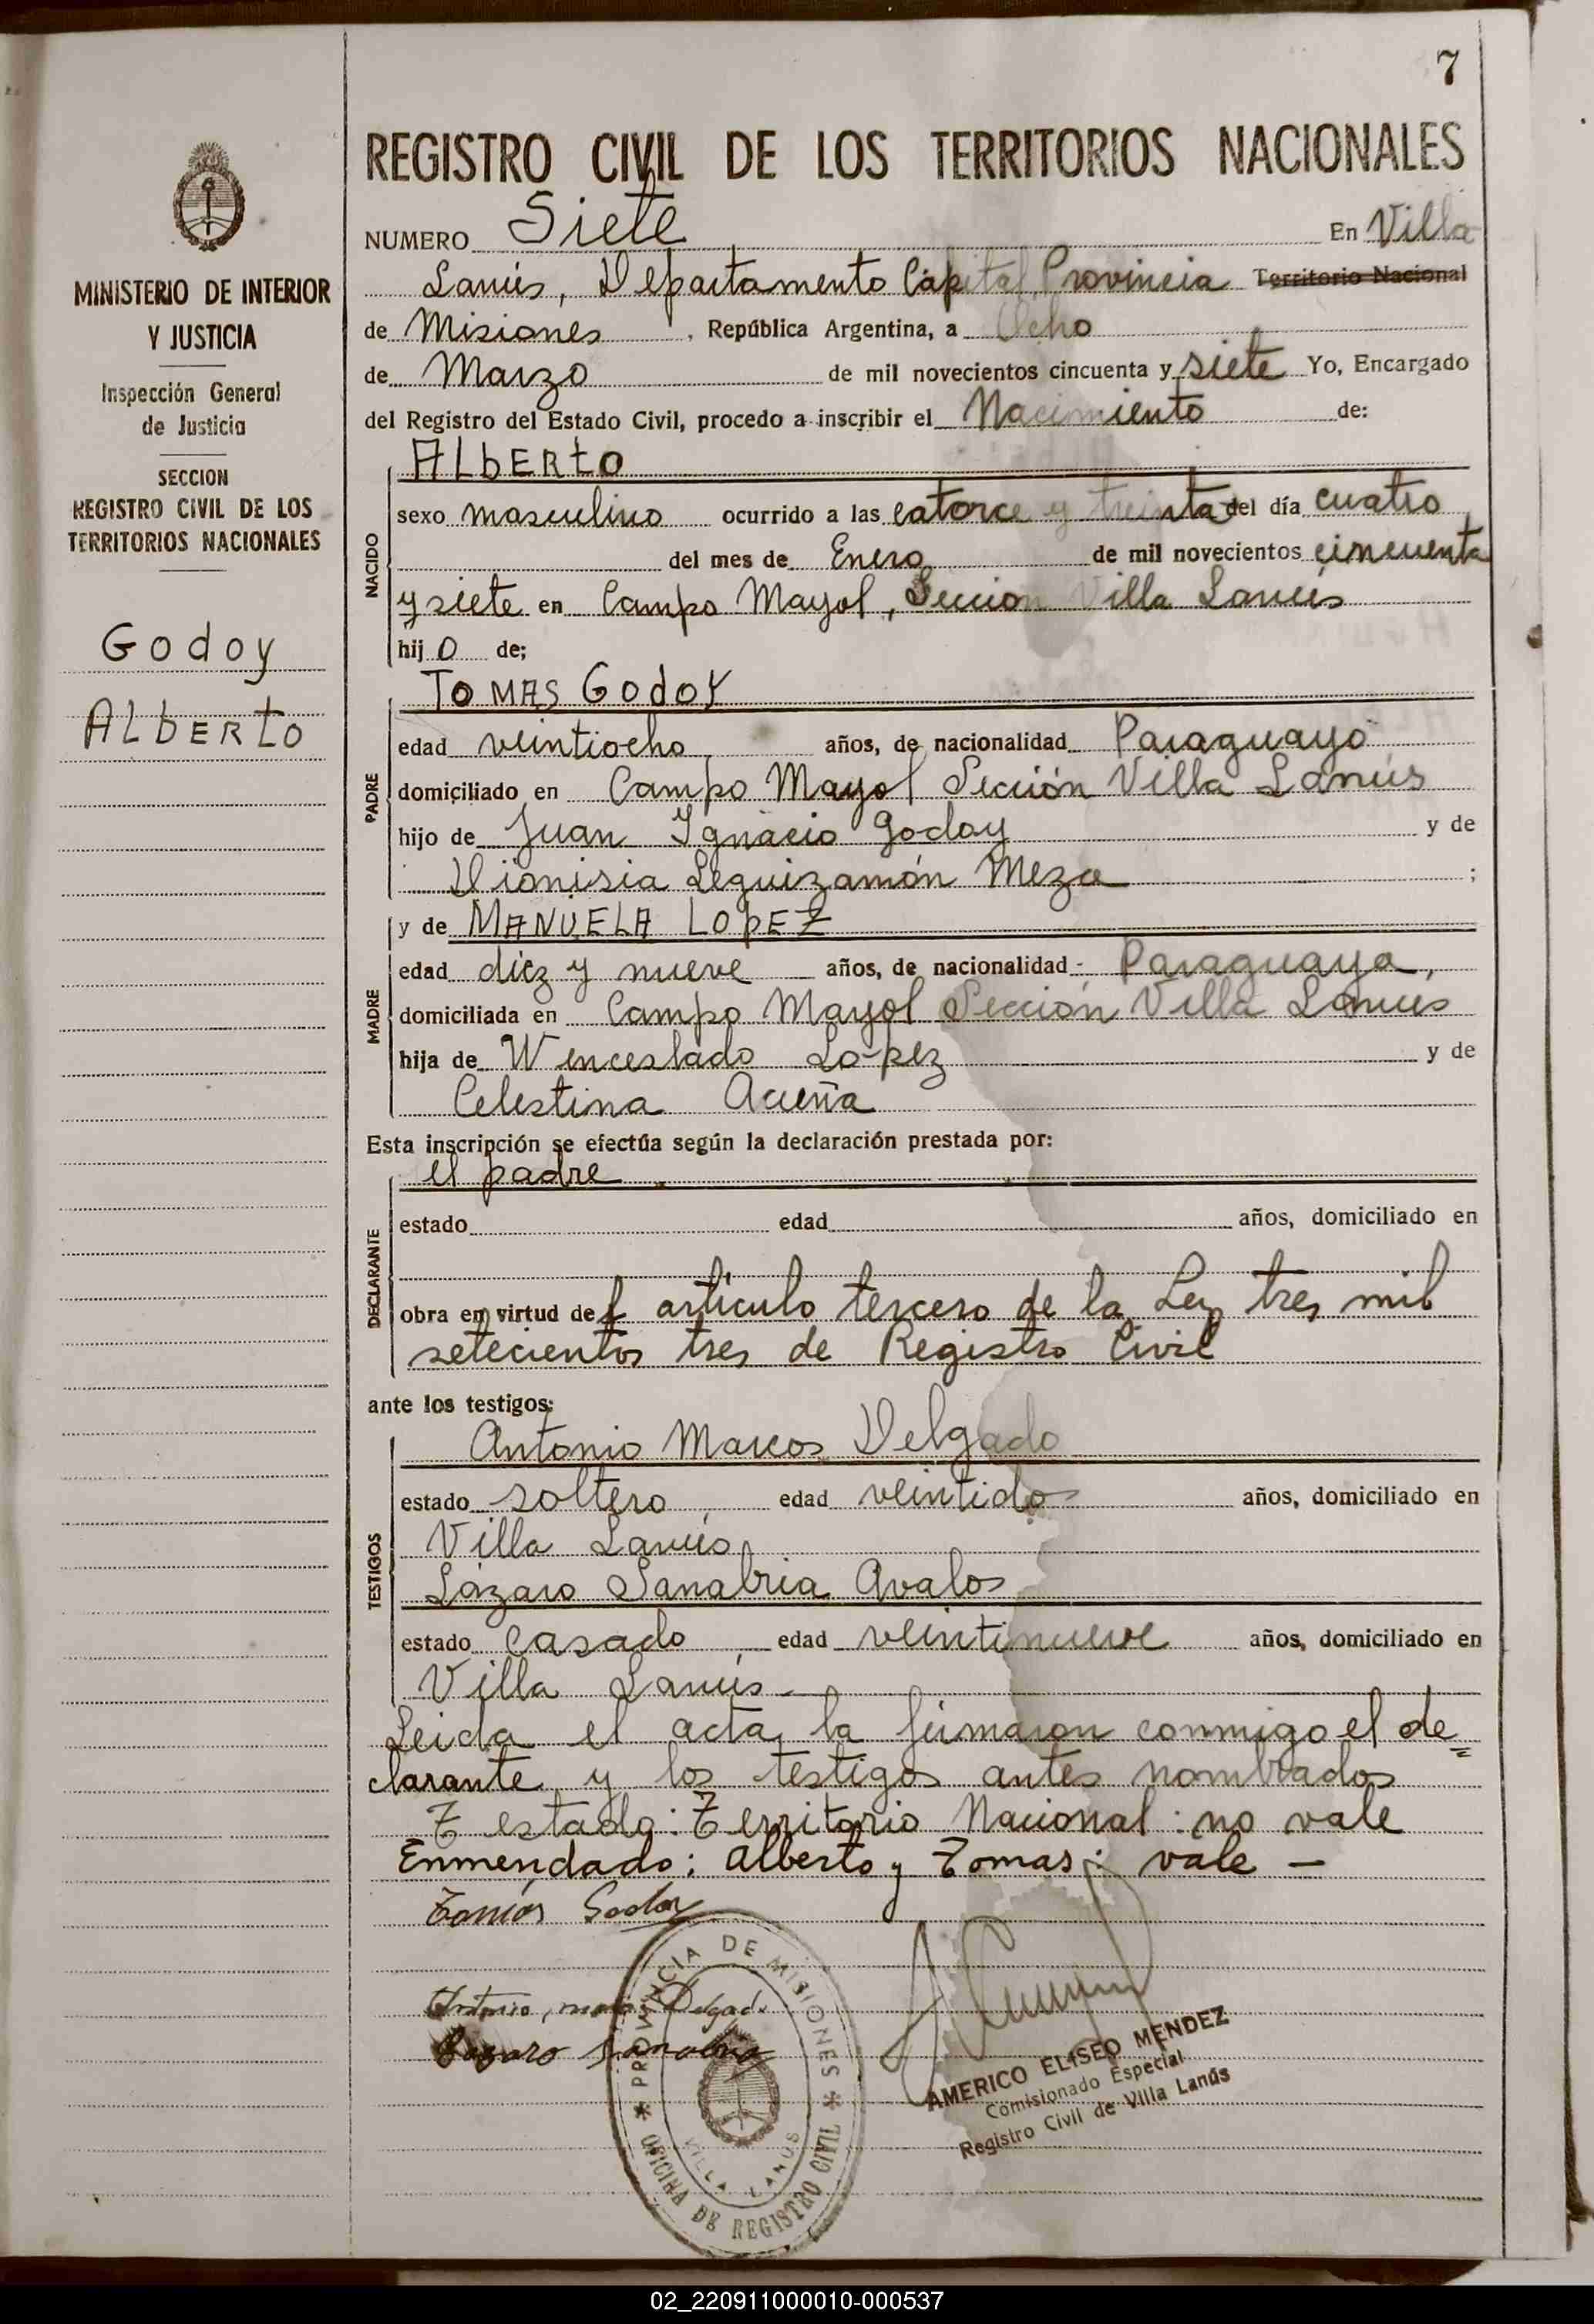 7
REGISTRO CIVIL DE LOS TERRITORIOS NACIONALES
NUMERO Siete En Villa
Lanús, Departamento Capital Provincia Territorio Nacional
de Misiones, República Argentina, a Ocho
de Marzo de mil novecientos cincuenta y siete Yo, Encargado
del Registro del Estado Civil, procedo a inscribir el Nacimiento de:
MINISTERIO DE INTERIOR
Y JUSTICIA
Inspección General
de Justicia
SECCION
REGISTRO CIVIL DE LOS
TERRITORIOS NACIONALES
Godoy
ALbERto
NACIDO
ALbERto
sexo masculino ocurrido a las catorce y treinta del día cuatro
del mes de Enero de mil novecientos cincuenta
y siete en Campo Mayol, Seccion Villa Lanús
hijo de;
PADRE
TOMAS GodoY
edad veintiocho años, de nacionalidad Paraguayo
domiciliado en Campo Mayol Sección Villa Lanús
hijo de Juan Ignacio Godoy y de
Dionisia Leguizamón Meza ;
MADRE
y de MANUELA LOpEZ
edad diez y nueve años, de nacionalidad Paraguaya,
domiciliada en Campo Mayol Sección Villa Lanús
hija de Wenceslado Lopez y de
Celestina Acuña
Esta inscripción se efectúa según la declaración prestada por:
DECLARANTE
el padre
estado edad años, domiciliado en
obra en virtud del artículo tercero de la Ley tres mil
setecientos tres de Registro Civil
ante los testigos:
TESTIGOS
Antonio Marcos Delgado
estado soltero edad veintidos años, domiciliado en
Villa Lanús
Lázaro Sanabria Avalos
estado casado edad veintinueve años, domiciliado en
Villa Lanús -
Leida el acta, la firmaron conmigo el de=
clarante y los testigos antes nombrados
Testado: Territorio Nacional: no vale
Enmendado: Alberto y Tomas: vale —
Tomás Godoy
Antonio, Delgado
Lazaro Sanabria
* PROVINCIA DE MISIONES *
OFICINA DE REGISTRO CIVIL
VILLA LANUS
AMERICO ELISEO MENDEZ
Comisionado Especial
Registro Civil de Villa Lanús
02_220911000010-000537